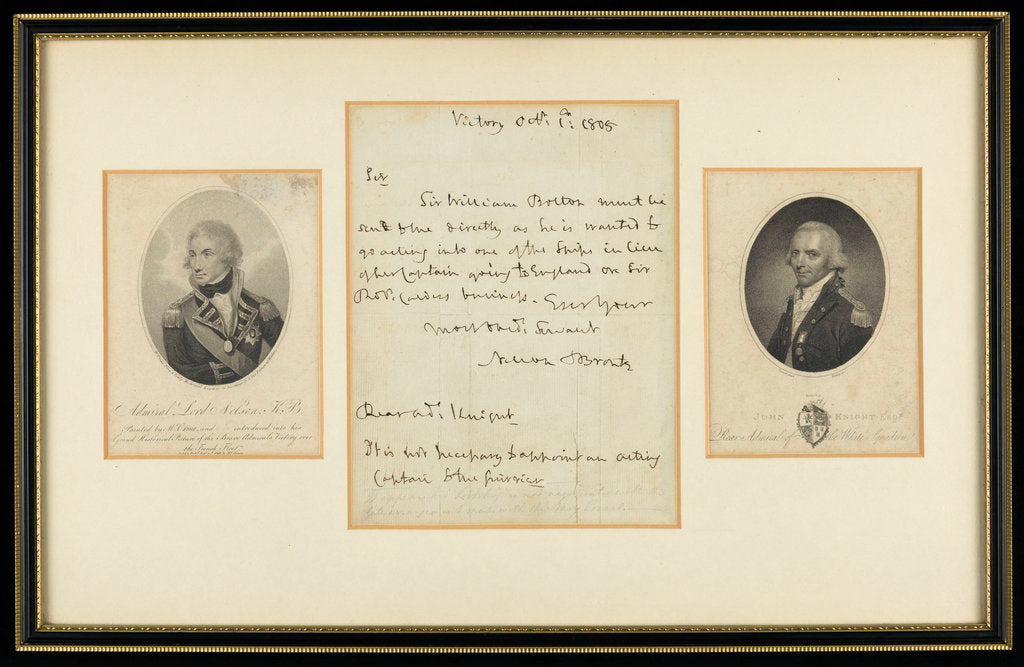 Victory Oct. 1st: 1805
Sir
Sir William Bolton must be
sent to me directly as he is wanted to
go acting into one of the Ships in lieu
of her Captain going to England on Sir
Robt. Calders business. Ever Your
most Obedt. Servant
Nelson & Bronte
Rear Adl. Knight
It is not necessary to appoint an acting
Captain to the Guerrier
Admiral Lord Nelson, K.B.
Painted by Mr. Orme, and introduced into his
Grand Historical Picture of the Brave Admiral's Victory over
the French Fleet
JOHN KNIGHT ESQR.
Rear Admiral of the White Squadron